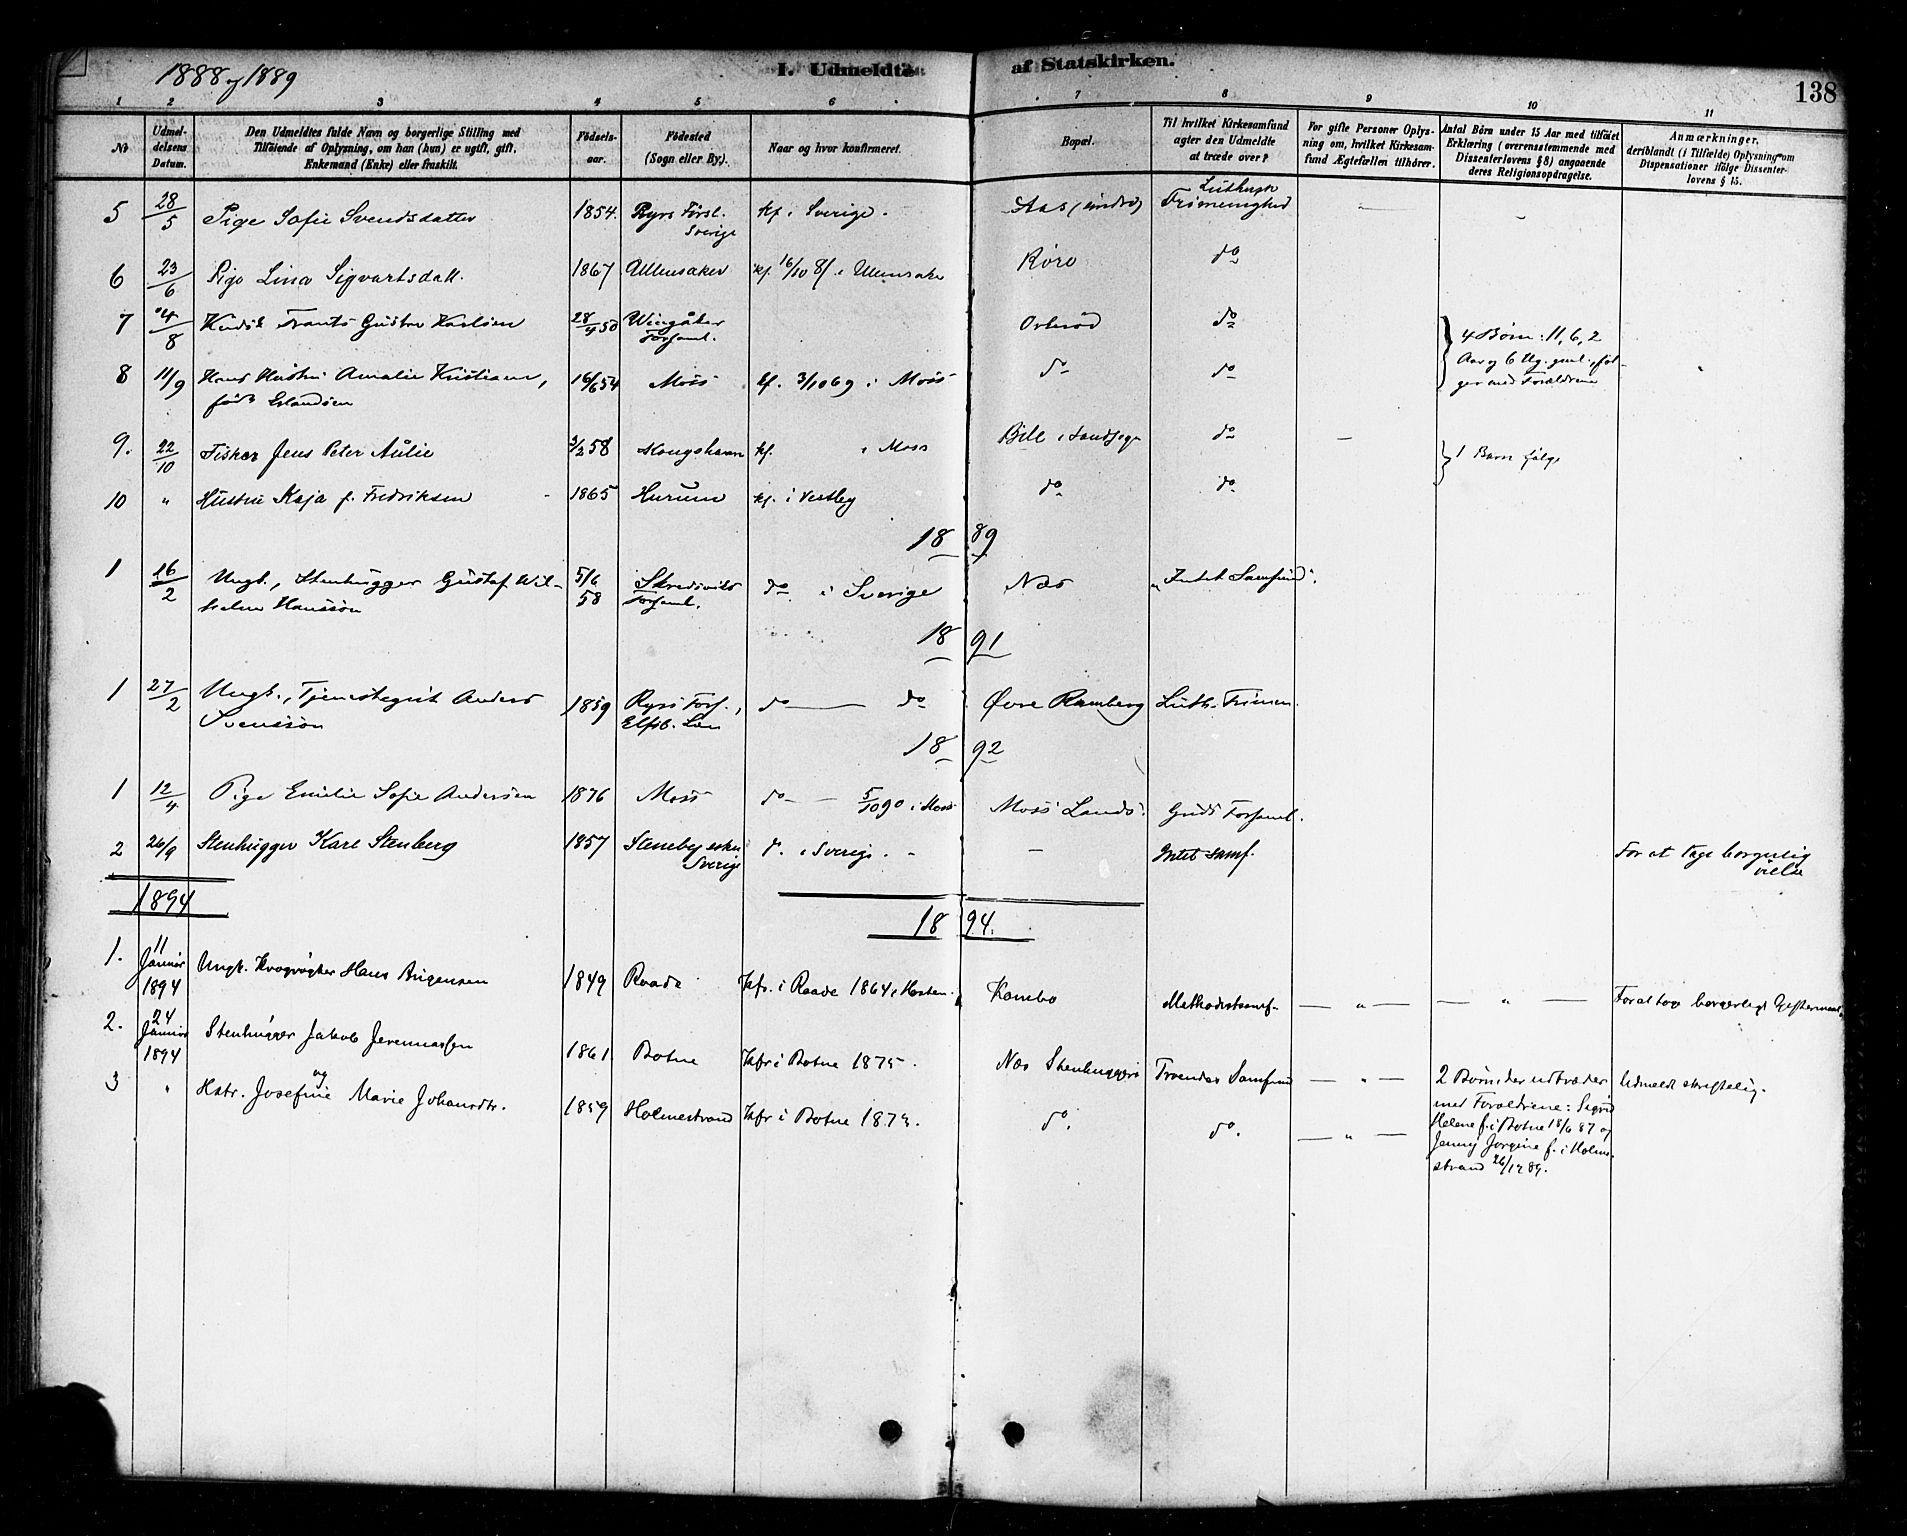 1888 og 1889
I. Udmeldte af Statskirken.
138
1 2 3 4 5 6 7 8 9 10 11
No
Udmeldelsens Datum.
Den Udmeldtes fulde Navn og borgerlige Stilling med
Tilføiende af Oplysning, om han (hun) er ugift, gift,
Enkemand (Enke) eller fraskilt.
Fødselsaar.
Fødested
(Sogn eller By).
Naar og hvor konfirmeret.
Bopæl.
Til hvilket Kirkesamfund
agter den Udmeldte
at træde over?
For gifte Personer Oplys-
ning om, hvilket Kirkesam-
fund Ægtefællen tilhører.
Antal Børn under 15 Aar med tilføiet
Erklæring (overensstemmende med
Dissenterlovens § 8) angaaende
deres Religionsopdragelse.
Anmærkninger,
deriblandt (i Tilfælde) Oplysning om
Dispensationer ifølge Dissenter-
lovens § 15.
5 28/5 Pige Sofie Svendsdatter 1854 Ryrs Forsl. Sverige kf. i Sverige. Aas Luthersk Frimenighed
6 23/6 Pige Lina Sigvartsdatt. 1867 Ullensaker kf. 16/10 81 i Ullensaker Røro do
7 4/8 Frants Gustav Karlsen 28/4 50 Wingåker Forsaml. do
8 11/9 Hans Hustru Amalie Kristiane, født Erlandsen 16/6 54 Moss kf. 3/10 69 i Moss do do
4 Børn: 11, 6, 2
Aar og 6 Ug. gml. føl-
ger med Forældrene
9. 22/10 Fisker Jens Peter Aulie 3/2 58 Kongshavn kf. i Moss do
1 Barn følg.
10 " Hustru Kaja f. Fredriksen 1865 Hurum kf. i Vestby do do
1889
1 16/2 Ungk., Stenhugger Gustaf Wil-
helm Hansson 5/6 58 Skredsviks Forsaml. do i Sverige Næs "Intet Samfund".
1891
1 27/2 Ungk., Tjenestegut Anders
Svensson 1859 Ryrs Fors., Elfsb. Län do do Øvre Ramberg Luth. Frimen.
1892
1 12/4 Pige Emilie Sofie Andersen 1876 Moss do 5/10 90 i Moss Moss Lands. Guds Forsaml.
2 26/9 Stenhugger Karl Stenberg 1857 Sverige d. i Sverige. – Intet Samf. For at tage borgerlig vielse
1894
1894.
1. 11 Januar 1894 Ungk. Hans 1849 Raade kfr. i Raade 1864 i Høsten. Kambo Methodistsamf. — " — — " — For at tage borgerligt Giftermaal.
2. 24 Januar 1894 Stenhugger Jakob 1861 Botne kfr i Botne 1875. Næs Stenhuggeri Troendes Samfund — " — 2 Børn der udtræder Udmeldt skriftelig.
3 " og Hstr. Josefine Marie Johansdtr. 1859 Holmestrand kfr i Botne 1873. do. do. — " —
med Forældrene: Sigrid
Helene f. i Botne 18/6 87 og
Jenny Jorgine f. i Holme-
strand 26/12 89.